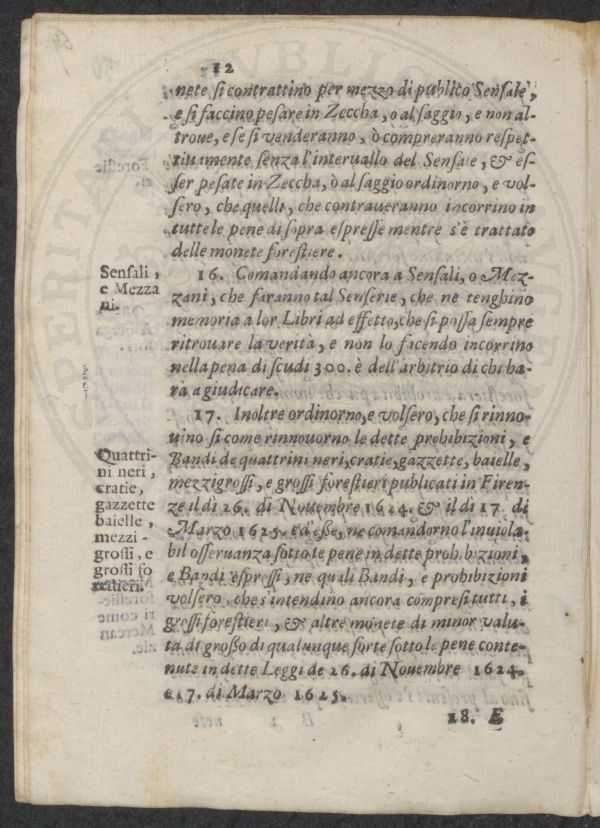 12
nete si contrattino per mezzo di publico Sensale,
e si faccino pesare in Zeccha, o al saggio, e non al-
troue, e se si venderanno, ò compreranno respet-
tiuamente senza l'interuallo del Sensale, & es-
ser pesate in Zeccha, ò al saggio ordinorno, e vol-
sero, che quelli, che contraueranno incorrino in
tutte le pene di sopra espresse mentre s'è trattato
delle monete forestiere.
Sensali,
e Mezza
ni.
16. Comandando ancora a Sensali, o Mez-
zani, che faranno tal Senserie, che ne tenghino
memoria a lor Libri ad effetto, che si possa sempre
ritrouare la verità, e non lo facendo incorrino
nella pena di scudi 300. è dell'arbitrio di chi ha-
rà a giudicare.
Quattri-
ni neri,
cratie,
gazzette
baielle,
mezzi-
grossi, e
grossi fo
restieri.
17. Inoltre ordinorno, e volsero, che si rinno-
uino si come rinnouorno le dette prohibizioni, e
Bandi de quattrini neri, cratie, gazzette, baielle,
mezzigrossi, e grossi forestieri publicati in Firen-
ze il dì 26. di Nouembre 1624. & il dì 17. di
Marzo 1625. e d'esse, ne comandorno l'inuiola-
bil osseruanza sotto le pene in dette prohibizioni,
e Bandi espressi, ne quali Bandi, e prohibizioni
volsero, che s'intendino ancora compresi tutti, i
grossi forestieri, & altre monete di minor valu-
ta di grosso di qualunque sorte sotto le pene conte-
nute in dette Leggi de 26. di Nouembre 1624.
e 17. di Marzo 1625.
18. E